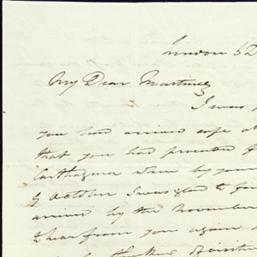 London 6 D
My Dear Martinez
I was
you had arrived safe at
that you had proceeded f
Carthagena when by your
of October I was glad to
arrived by the November
to hear from you again